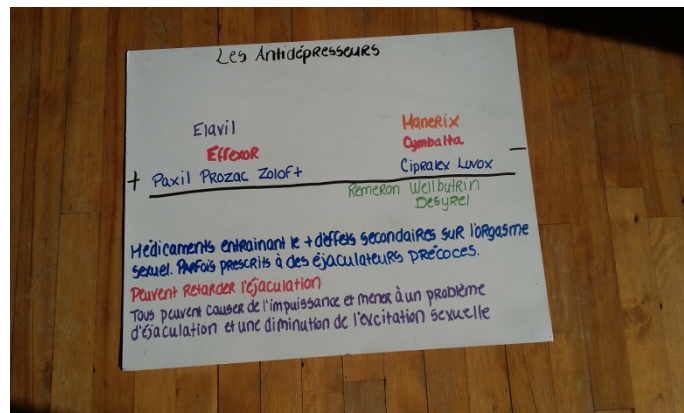 Les Antidépresseurs
Elavil Manerix
Effexor Cymbalta
+ Paxil Prozac Zoloft Cipralex Luvox -
Remeron Wellbutrin
Desyrel
Médicaments entrainant le + d'effets secondaires sur l'orgasme
sexuel. Parfois prescrits à des éjaculateurs précoces.
Peuvent retarder l'éjaculation
Tous peuvent causer de l'impuissance et mener à un problème
d'éjaculation et une diminution de l'excitation sexuelle